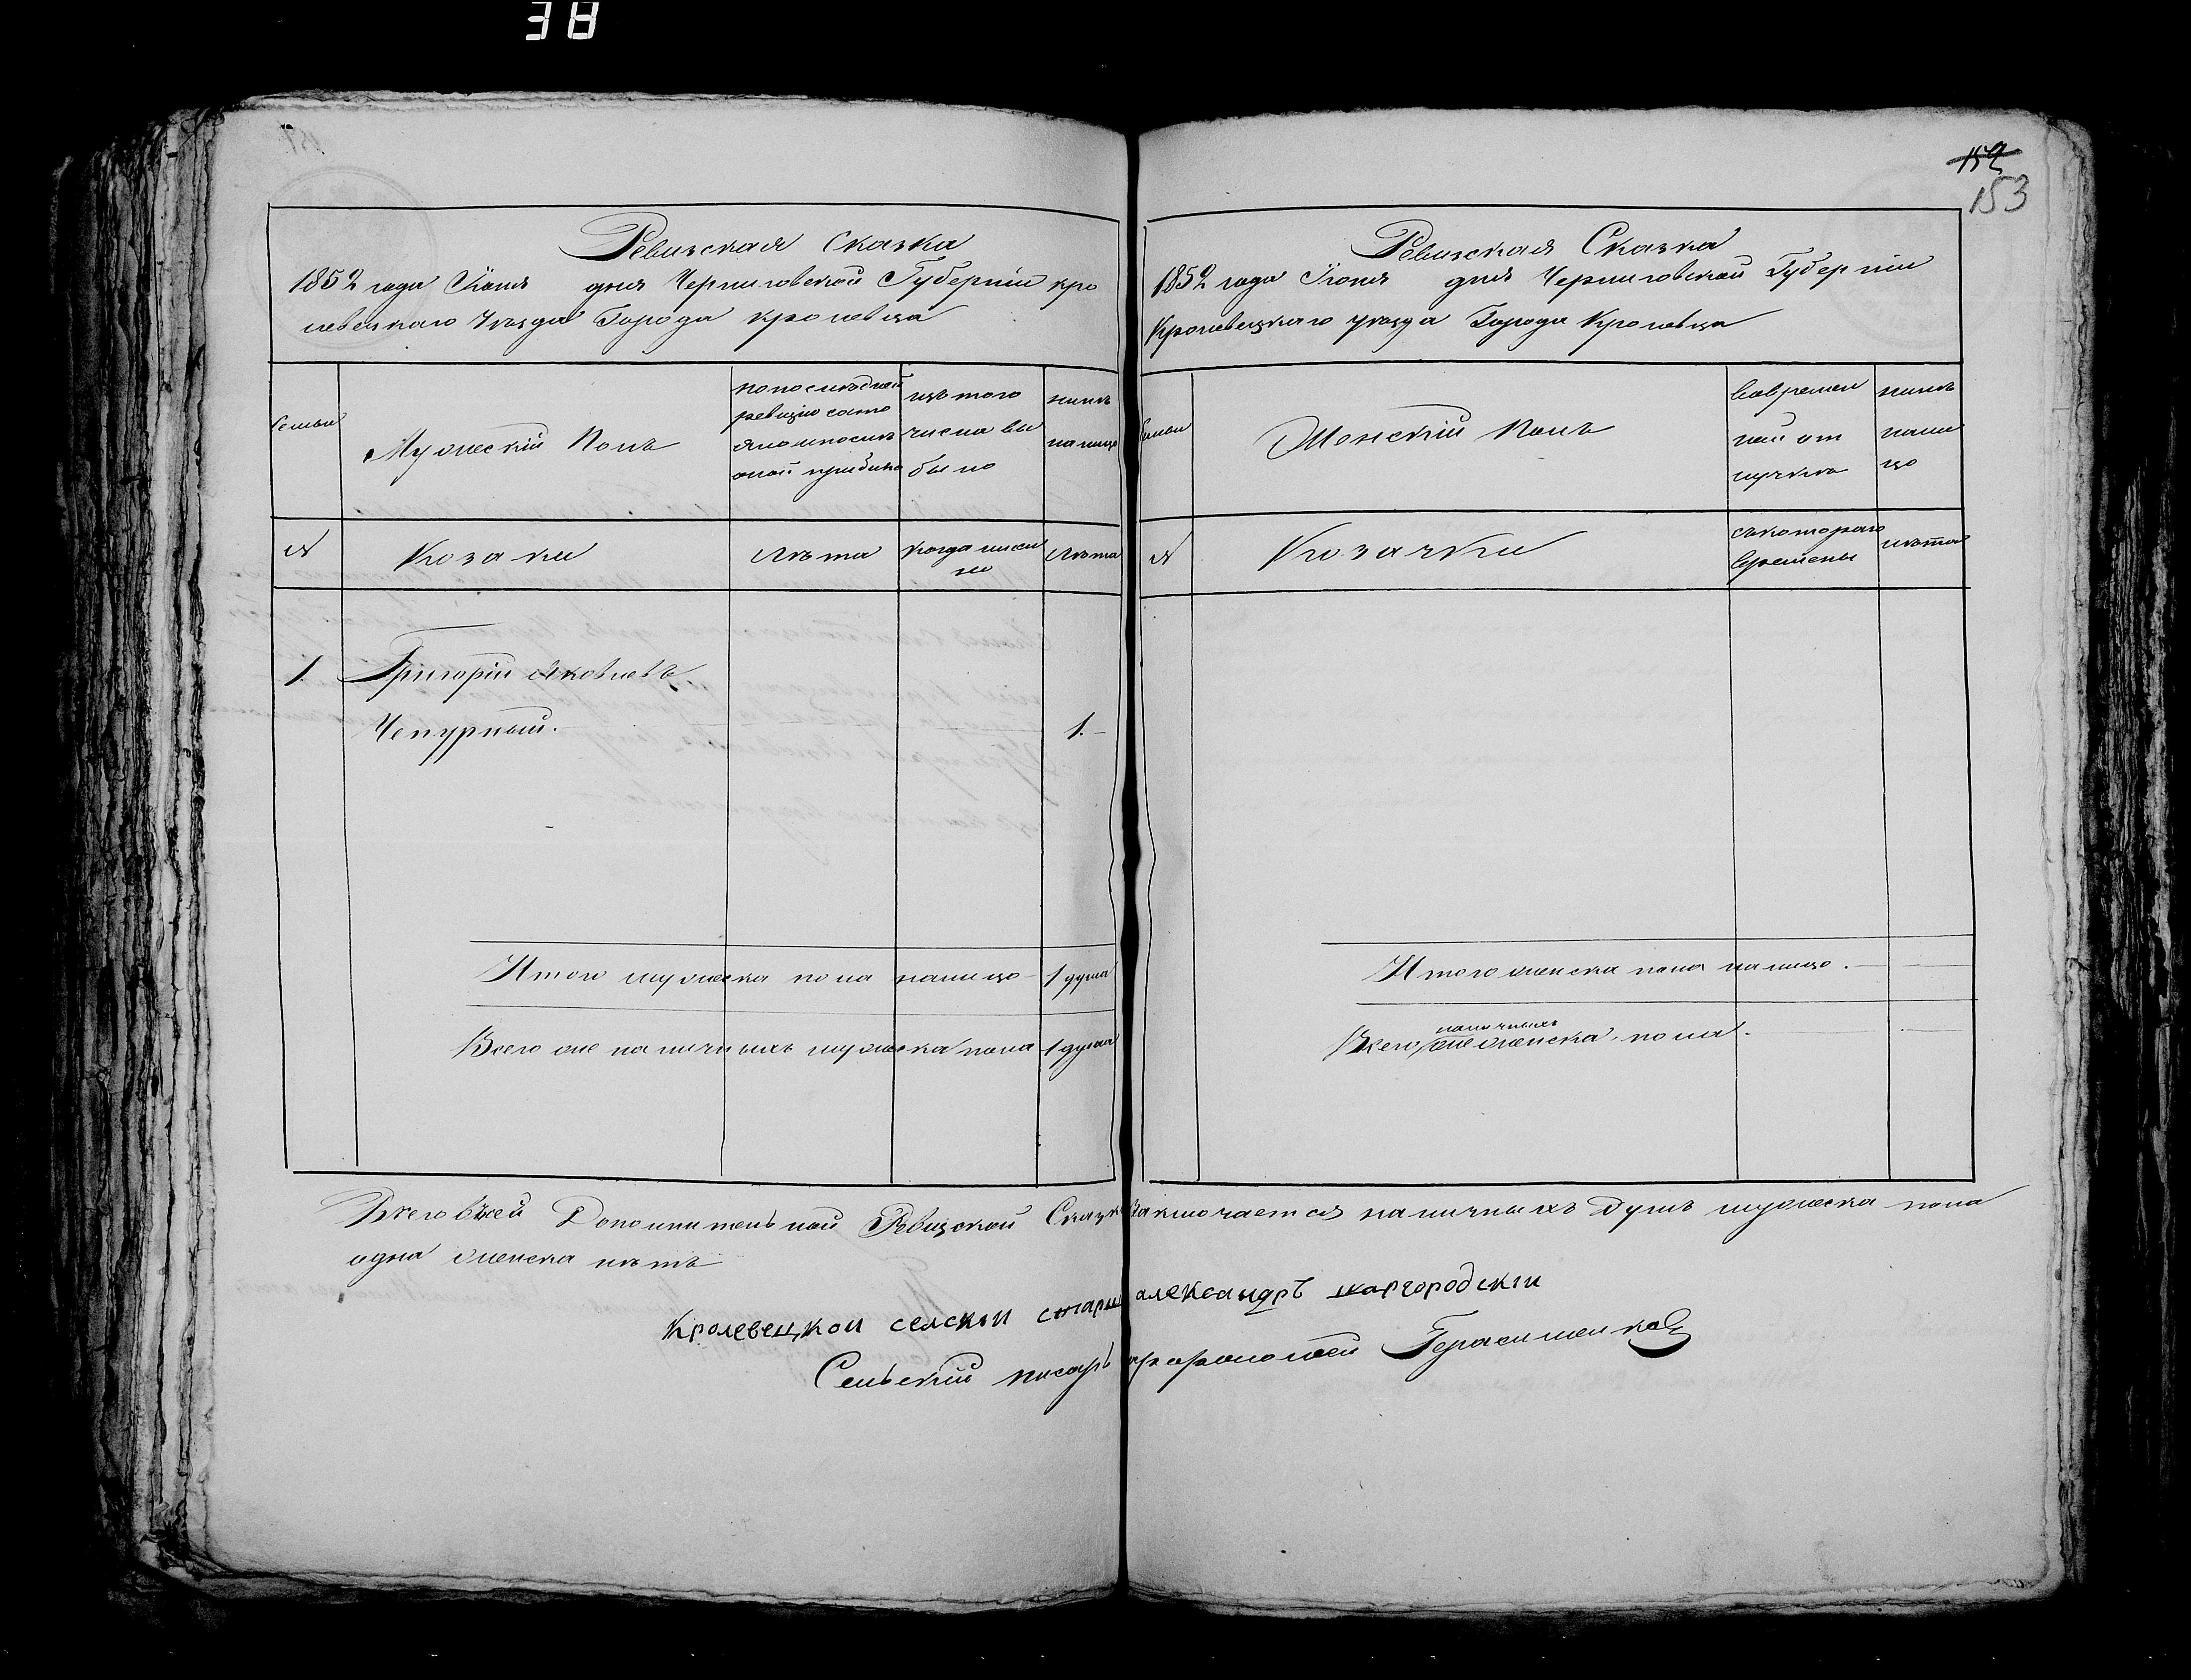 38
152
153
Ревизская Сказка
1852 года Июня дня Черниговской Губернии кро
левецкаго Уезда Города Кролевца
Семьи
Мужеский Полъ
по последней
ревизии состо
яло и после
оной прибыло
изъ того
числа вы
было
ныне
на лицо
№
Козаки
Лета
когда имен
но
Лета
1.
Григорий Яковлевъ
Чепурный.
1.
Итого мужеска пола налицо 1 душа
Всего же наличныхъ мужеска пола 1 душа
Ревизская Сказка
1852 года Июня дня Черниговской Губернии
Кролевецкаго уезда Города Кролевца
Семьи
Женский Полъ
во времен
ной от
лучке
ныне
нали
цо
№
Козачки
съ котораго
времены
лета
Итого женска пола налицо.
наличныхъ
Всего же женска пола.
Всего в сей Дополнительной Ревизской Сказке Заключается наличныхъ Душъ мужеска пола
одна женска нетъ
Кролевецкой селский старш александръ шаргородский
Сельский писарь Герасименко